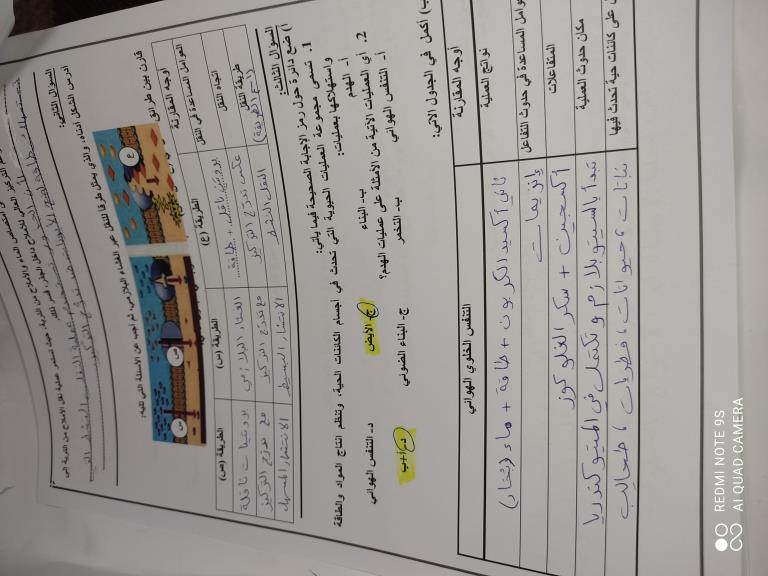 السؤال الثاني:
أدرس الشكل أدناه، والذي يمثل طرقا للنقل عبر الغشاء البلازمي، ثم أجب عن الأسئلة التي تليه:
ع
س
قارن بين طرائق
أوجه المقارنة
الطريقة (ع)
الطريقة (س)
الطريقة (ص)
العوامل المساعدة في النقل
بروتين ناقل + طاقة
الغشاء البلازمي
بروتينات ناقلة
اتجاه النقل
عكس تدرج التركيز
مع تدرج التركيز
مع تدرج التركيز
طريقة النقل
(اسم الطريقة)
النقل النشط
الانتشار البسيط
الانتشار المسهل
السؤال الثالث:
أ) ضع دائرة حول رمز الإجابة الصحيحة فيما يأتي:
1. تسمى مجموعة العمليات الحيوية التي تحدث في أجسام الكائنات الحية، وتنظم انتاج المواد والطاقة
واستهلاكها بعمليات:
أ- الهدم
ب- البناء
ج- الأيض
د- التنفس الهوائي
2. أي العمليات الآتية من الأمثلة على عمليات الهدم؟
أ- التنفس الهوائي
ب- التخمر
ج- البناء الضوئي
د- أ+ب
ب) أكمل في الجدول الآتي:
أوجه المقارنة
التنفس الخلوي الهوائي
نواتج العملية
ثاني أكسيد الكربون + طاقة + ماء (بخار)
العوامل المساعدة في حدوث التفاعل
إنزيمات
المتفاعلات
أكسجين + سكر الغلوكوز
مكان حدوث العملية
تبدأ بالسيتوبلازم وتكتمل في الميتوكندريا
على كائنات حية تحدث فيها
نباتات، حيوانات، فطريات، طحالب
REDMI NOTE 9S
AI QUAD CAMERA